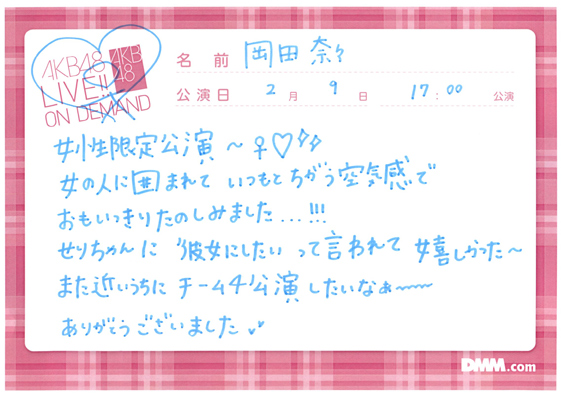 AKB48
LIVE!!
ON DEMAND
AKB
48
名前 岡田奈々
公演日 2月 9日 17:00 公演
女性限定公演〜♀♡
女の人に囲まれて いつもとちがう空気感で
おもいっきりたのしみました...!!!
せりちゃんに "彼女にしたい" って言われて 嬉しかった〜
また近いうちに チーム4公演したいなぁ〜〜
ありがとうございました
DMM.com